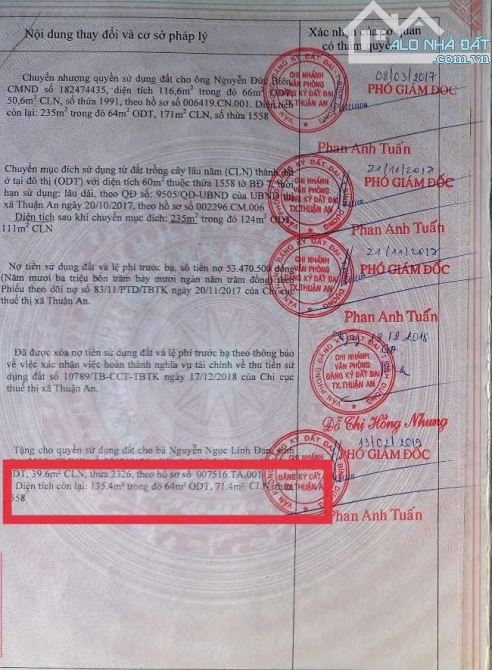 Nội dung thay đổi và cơ sở pháp lý
Xác nhận của cơ quan
có thẩm quyền
ALO NHÀ ĐẤT
Chuyển nhượng quyền sử dụng đất cho ông Nguyễn Đức Biên
CMND số 182474435, diện tích 116,6m² trong đó 66m² ODT,
50,6m² CLN, thửa 1991, theo hồ sơ 006419.CN.001. Diện tích
còn lại: 235m² trong đó 64m² ODT, 171m² CLN, số thửa 1558
08/03/2017
PHÓ GIÁM ĐỐC
CHI NHÁNH
VĂN PHÒNG
ĐĂNG KÝ ĐẤT ĐAI
TX.THUẬN AN
Phan Anh Tuấn
Chuyển mục đích sử dụng từ đất trồng cây lâu năm (CLN) thành đất
ở tại đô thị (ODT) với diện tích 60m² thuộc thửa 1558 tờ BĐ 7, thời
hạn sử dụng: lâu dài, theo QĐ số: 9505/QĐ-UBND của UBND thị
xã Thuận An ngày 20/10/2017, theo hồ sơ số 002296.CM.006
Diện tích sau khi chuyển mục đích: 235m² trong đó 124m² ODT,
111m² CLN
21/11/2017
PHÓ GIÁM ĐỐC
CHI NHÁNH
VĂN PHÒNG
ĐĂNG KÝ ĐẤT ĐAI
TX.THUẬN AN
Phan Anh Tuấn
Nợ tiền sử dụng đất và lệ phí trước bạ, số tiền nợ 53.470.500 đồng
(Năm mươi ba triệu bốn trăm bảy mươi ngàn năm trăm đồng) theo
Phiếu theo dõi nợ số 83/11/PTD/TBTK ngày 20/11/2017 của Chi cục
thuế thị xã Thuận An.
21/11/2017
PHÓ GIÁM ĐỐC
CHI NHÁNH
VĂN PHÒNG
ĐĂNG KÝ ĐẤT ĐAI
TX.THUẬN AN
Phan Anh Tuấn
Đã được xóa nợ tiền sử dụng đất và lệ phí trước bạ theo thông báo
về việc xác nhận việc hoàn thành nghĩa vụ tài chính về thu tiền
sử dụng đất số 10789/TB-CCT-TBTK ngày 17/12/2018 của Chi cục
thuế thị xã Thuận An.
2018
CHI NHÁNH
VĂN PHÒNG
ĐĂNG KÝ ĐẤT ĐAI
TX.THUẬN AN
Đỗ Thị Hồng Nhung
Tặng cho quyền sử dụng đất cho bà Nguyễn Ngọc Linh Đan,
DT, 39.6m² CLN, thửa 2326, theo hồ sơ số 007516.TA.001
Diện tích còn lại: 135.4m² trong đó 64m² ODT, 71.4m² CLN
558
13/02/2019
PHÓ GIÁM ĐỐC
ĐĂNG KÝ ĐẤT
TX.THUẬN AN
Phan Anh Tuấn